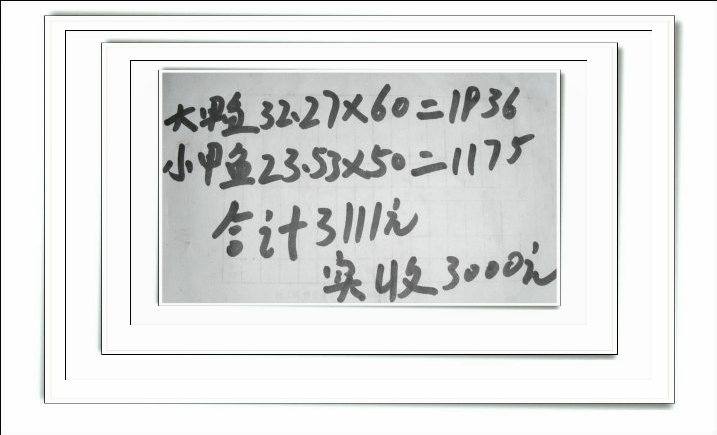 大甲鱼32.27×60=1936
小甲鱼23.53×50=1175
合计3111元
实收3000元